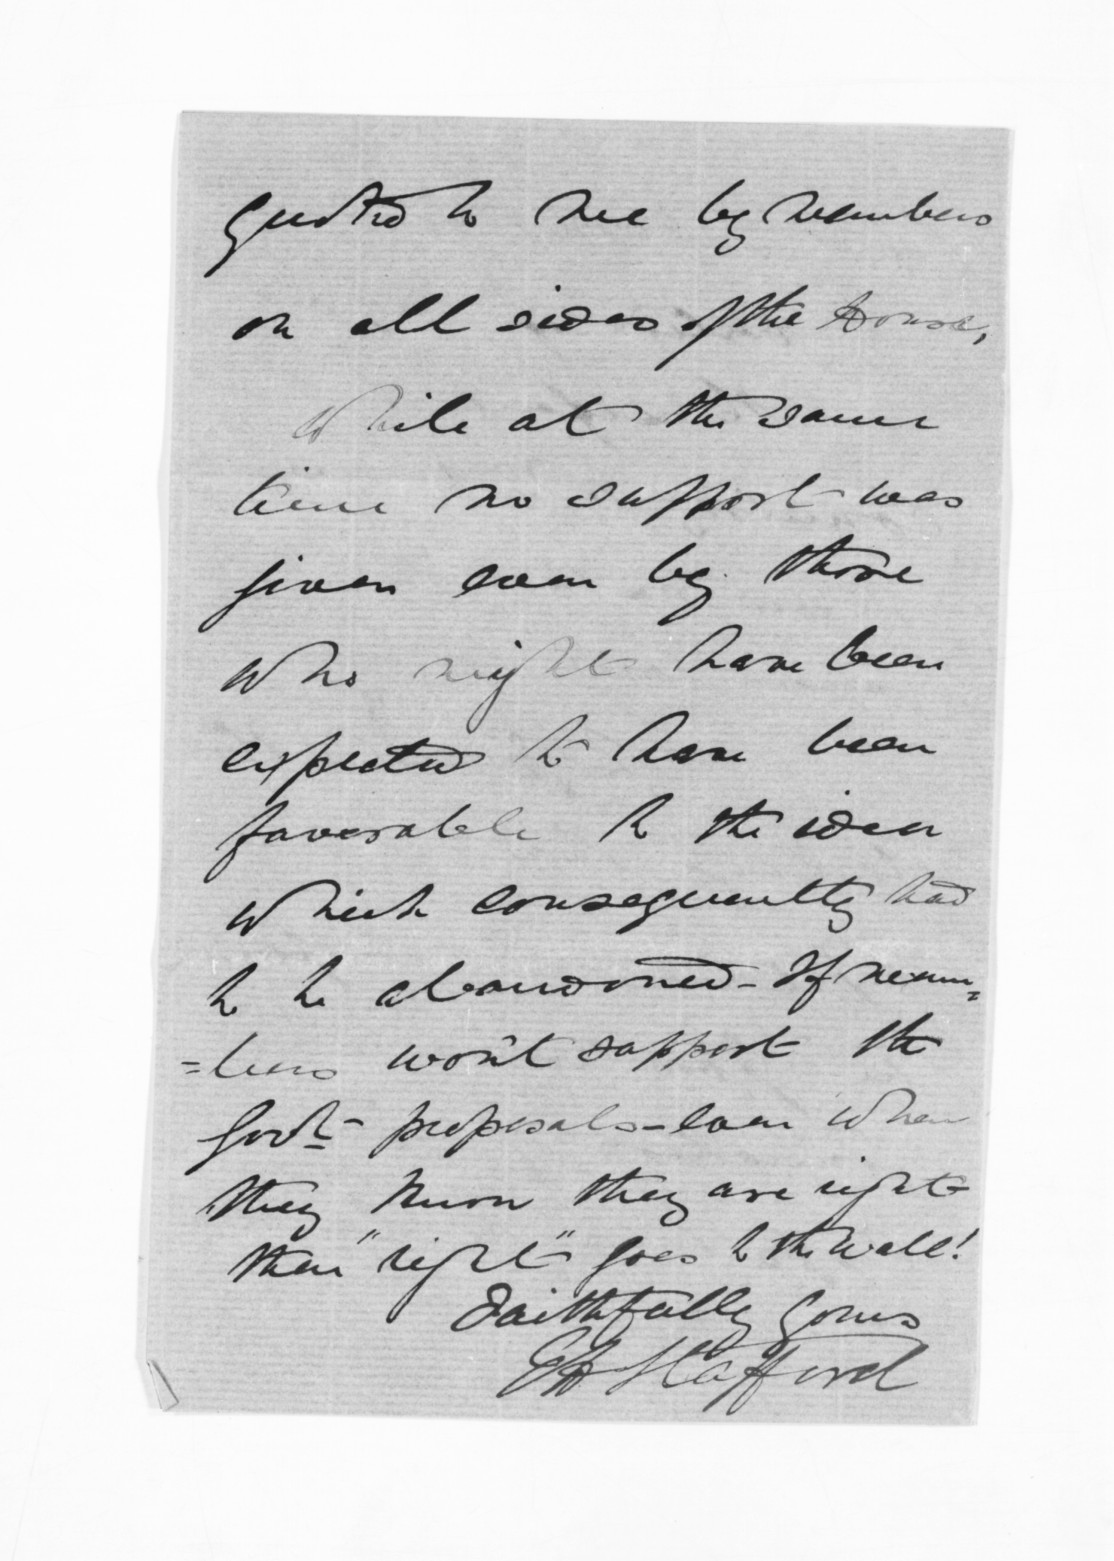 quoted to me by members
on all sides of the House,
while at the same
time no support was
given even by those
who might have been
expected to have been
favorable to the idea
which consequently had
to be abandoned - If mem=
=bers won't support the
Govt- proposals - even when
they know they are right -
then "right" goes to the wall!
Faithfully Yours
EWStafford